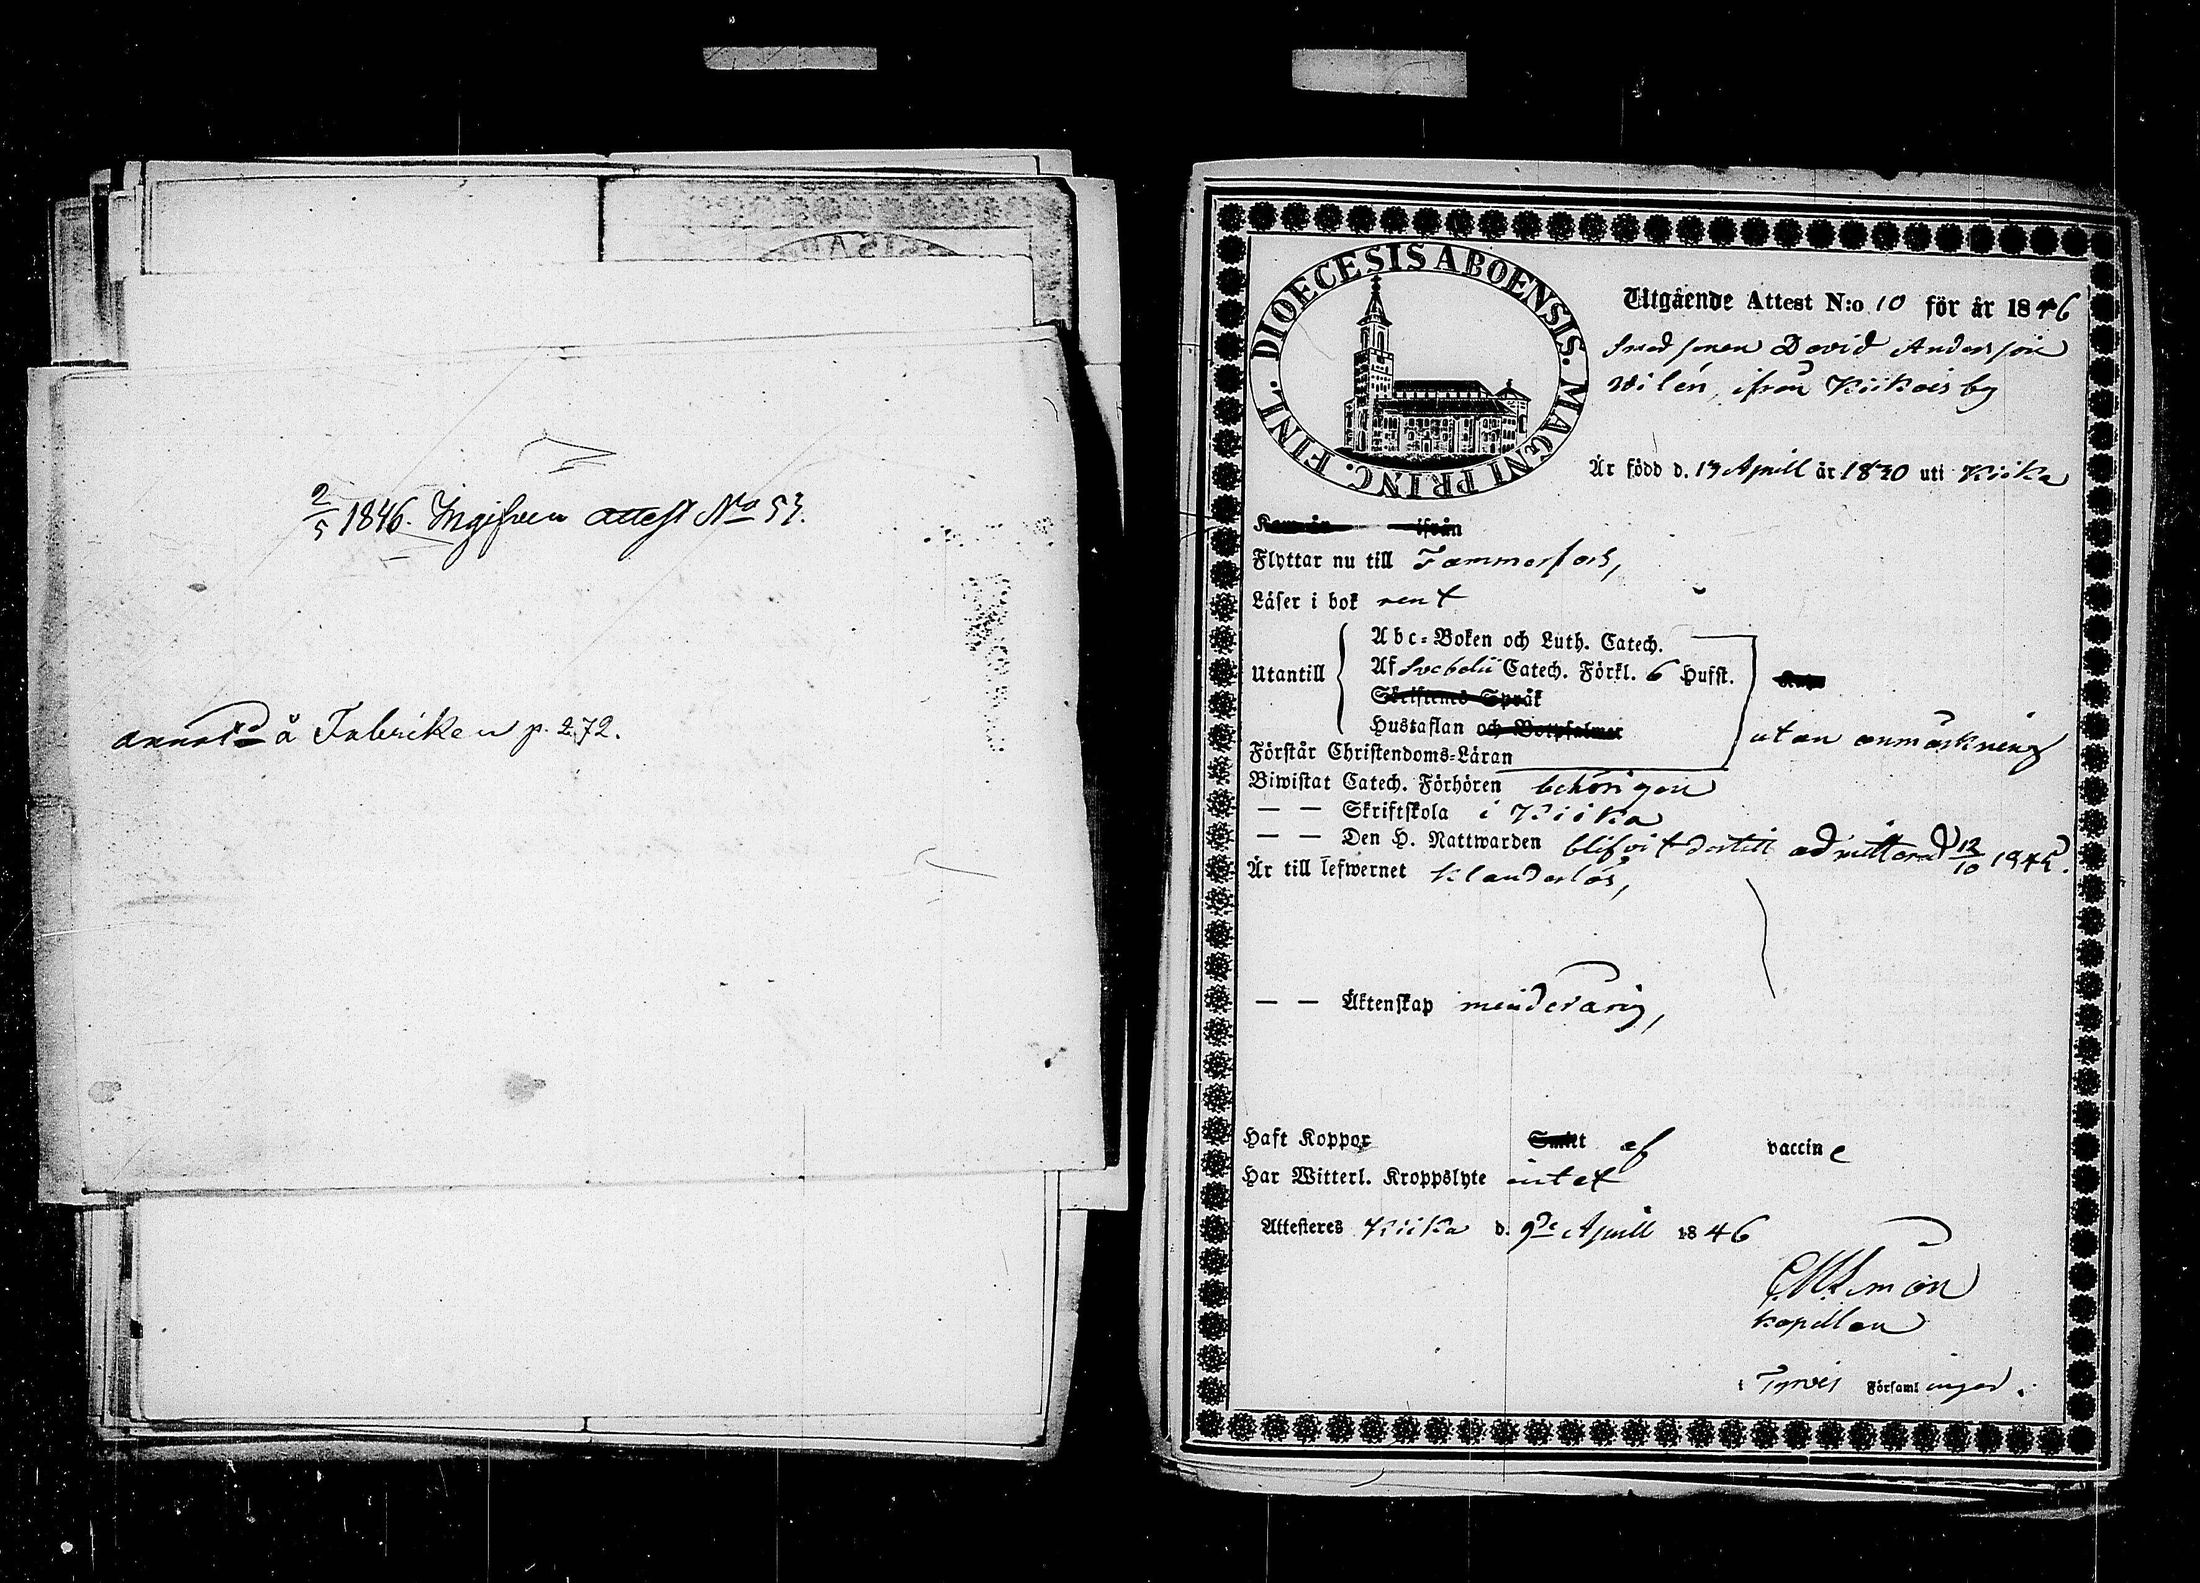 2/5 1846. Ingifven attest No 53.
annot. å Fabriken p. 272.
DIOECESIS ABOENSIS. MAGNI PRINC. FINL.
Utgående Attest N:o 10 för år 1846
Smedsonen David Andersson
Wilén, ifrån Kiikois by
Är född d. 13 April år 1830 uti Kiika
Kom år ifrån
Flyttar nu till Tammerfors,
Läser i bok rent
Abc-Boken och Luth. Catech.
Utantill Af Svebelii Catech. Förkl. 6 Hufst.
Skriftenes Språk
Hustaflan och Botpsalmer
utan anmärkning
Förstår Christendoms-Läran
Biwistat Catech. Förhören behörigen
— — Skriftskola i Kiika
— — Den H. Nattwarden blifvit dertill admitterad 12/10 1845.
Är till lefwernet klanderlös,
— — Äktenskap minderårig,
Haft Koppor Smitt af vaccine
Har Witterl. Kroppslyte intet
Attesteres Kiika d. 9de April 1846
kapellan
i Tyrvis Församlingar.